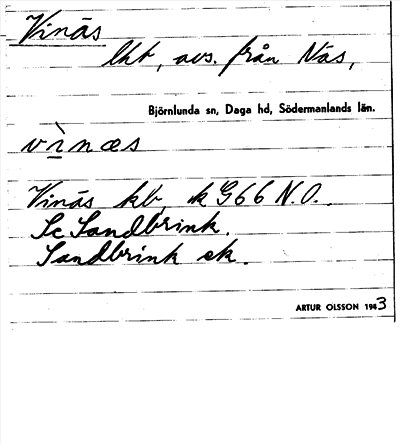 Vinäs
lht, avs. från Näs,
Björnlunda sn, Daga hd, Södermanlands län.
vìnæs
Vinäs kb, ek G66 N.O..
Se Sandbrink.
Sandbrink ek.
ARTUR OLSSON 1943